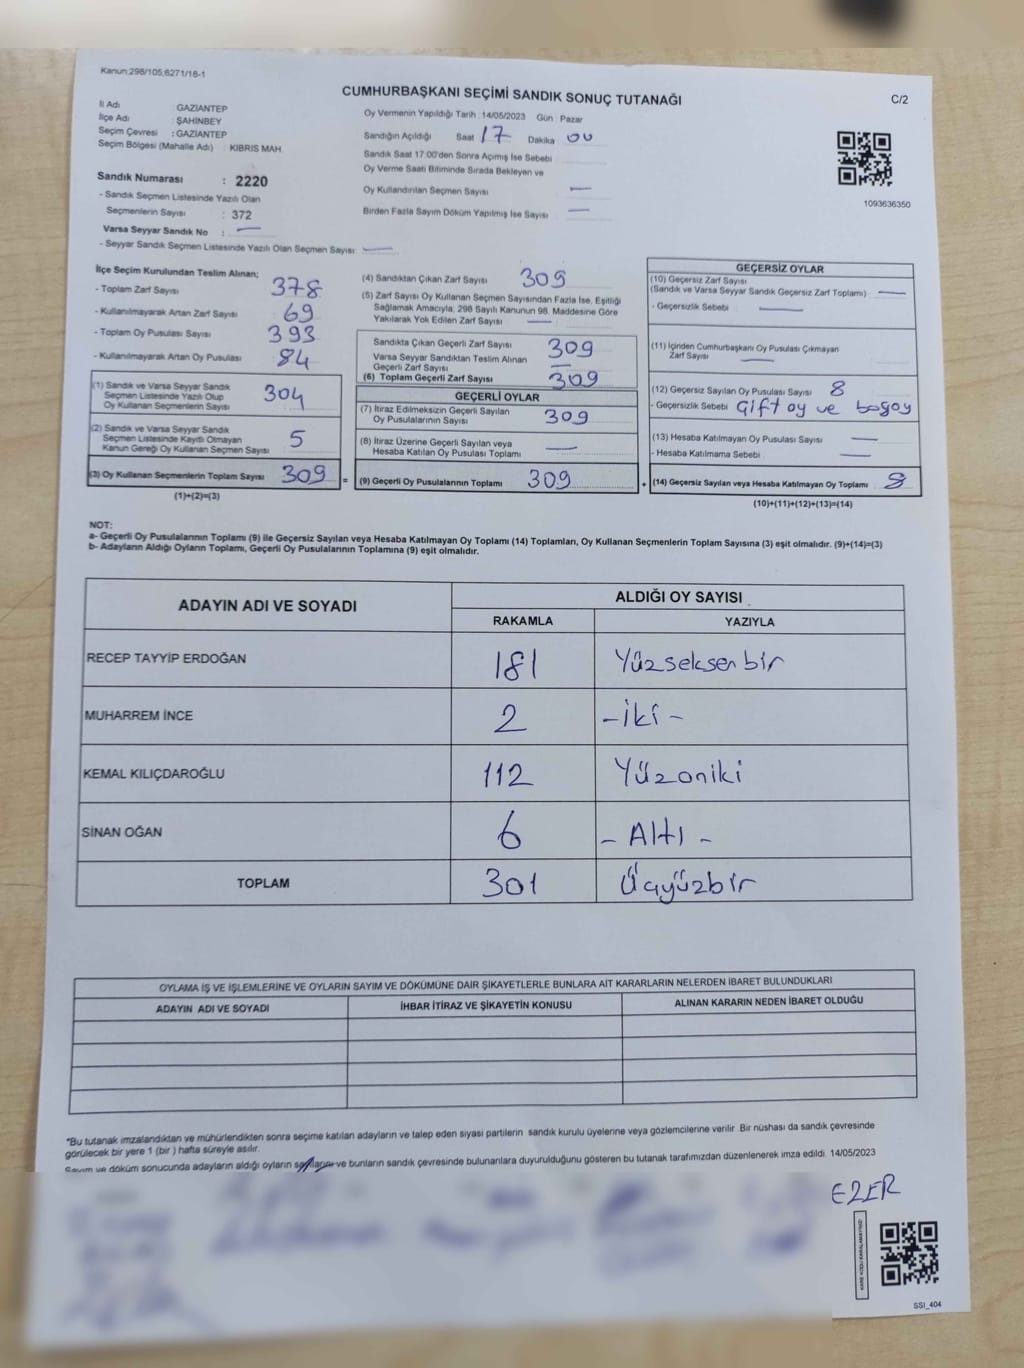 Kanun;298/105;6271/18-1
CUMHURBAŞKANI SEÇİMİ SANDIK SONUÇ TUTANAĞI
C/2
İl Adı : GAZİANTEP
İlçe Adı : ŞAHİNBEY
Seçim Çevresi : GAZİANTEP
Seçim Bölgesi (Mahalle Adı) : KIBRIS MAH.
Oy Vermenin Yapıldığı Tarih :14/05/2023 Gün : Pazar
Sandığın Açıldığı Saat 17 Dakika 00
Sandık Saat 17:00'den Sonra Açımış İse Sebebi
Oy Verme Saati Bitiminde Sırada Bekleyen ve
Oy Kullandırılan Seçmen Sayısı —
Birden Fazla Sayım Döküm Yapılmış İse Sayısı —
1093636350
Sandık Numarası : 2220
- Sandık Seçmen Listesinde Yazılı Olan
Seçmenlerin Sayısı : 372
Varsa Seyyar Sandık No : —
- Seyyar Sandık Seçmen Listesinde Yazılı Olan Seçmen Sayısı: —
İlçe Seçim Kurulundan Teslim Alınan;
- Toplam Zarf Sayısı 378
- Kullanılmayarak Artan Zarf Sayısı 69
- Toplam Oy Pusulası Sayısı 393
- Kullanılmayarak Artan Oy Pusulası 84
(1) Sandık ve Varsa Seyyar Sandık
Seçmen Listesinde Yazılı Olup
Oy Kullanan Seçmenlerin Sayısı 304
(2) Sandık ve Varsa Seyyar Sandık
Seçmen Listesinde Kayıtlı Olmayan
Kanun Gereği Oy Kullanan Seçmen Sayısı 5
(3) Oy Kullanan Seçmenlerin Toplam Sayısı 309 =
(1)+(2)=(3)
(4) Sandıktan Çıkan Zarf Sayısı 309
(5) Zarf Sayısı Oy Kullanan Seçmen Sayısından Fazla İse, Eşitliği
Sağlamak Amacıyla, 298 Sayılı Kanunun 98. Maddesine Göre
Yakılarak Yok Edilen Zarf Sayısı —
Sandıkta Çıkan Geçerli Zarf Sayısı 309
Varsa Seyyar Sandıktan Teslim Alınan
Geçerli Zarf Sayısı —
(6) Toplam Geçerli Zarf Sayısı 309
GEÇERLİ OYLAR
(7) İtiraz Edilmeksizin Geçerli Sayılan
Oy Pusulalarının Sayısı 309
(8) İtiraz Üzerine Geçerli Sayılan veya
Hesaba Katılan Oy Pusulası Toplamı —
(9) Geçerli Oy Pusulalarının Toplamı 309 +
GEÇERSİZ OYLAR
(10) Geçersiz Zarf Sayısı
(Sandık ve Varsa Seyyar Sandık Geçersiz Zarf Toplamı) —
- Geçersizlik Sebebi —
(11) İçinden Cumhurbaşkanı Oy Pusulası Çıkmayan
Zarf Sayısı —
(12) Geçersiz Sayılan Oy Pusulası Sayısı 8
- Geçersizlik Sebebi Çift oy ve boşoy
(13) Hesaba Katılmayan Oy Pusulası Sayısı —
- Hesaba Katılmama Sebebi —
(14) Geçersiz Sayılan veya Hesaba Katılmayan Oy Toplamı 8
(10)+(11)+(12)+(13)=(14)
NOT:
a- Geçerli Oy Pusulalarının Toplamı (9) ile Geçersiz Sayılan veya Hesaba Katılmayan Oy Toplamı (14) Toplamları, Oy Kullanan Seçmenlerin Toplam Sayısına (3) eşit olmalıdır. (9)+(14)=(3)
b- Adayların Aldığı Oyların Toplamı, Geçerli Oy Pusulalarının Toplamına (9) eşit olmalıdır.
ADAYIN ADI VE SOYADI
ALDIĞI OY SAYISI
RAKAMLA YAZIYLA
RECEP TAYYİP ERDOĞAN 181 Yüzseksenbir
MUHARREM İNCE 2 -İki-
KEMAL KILIÇDAROĞLU 112 Yüzoniki
SİNAN OĞAN 6 - Altı -
TOPLAM 301 Üçyüzbir
OYLAMA İŞ VE İŞLEMLERİNE VE OYLARIN SAYIM VE DÖKÜMÜNE DAİR ŞİKAYETLERLE BUNLARA AİT KARARLARIN NELERDEN İBARET BULUNDUKLARI
ADAYIN ADI VE SOYADI İHBAR İTİRAZ VE ŞİKAYETİN KONUSU ALINAN KARARIN NEDEN İBARET OLDUĞU
*Bu tutanak imzalandıktan ve mühürlendikten sonra seçime katılan adayların ve talep eden siyasi partilerin sandık kurulu üyelerine veya gözlemcilerine verilir. Bir nüshası da sandık çevresinde
görülecek bir yere 1 (bir ) hafta süreyle asılır.
Sayım ve döküm sonucunda adayların aldığı oyların sayılarını ve bunların sandık çevresinde bulunanlara duyurulduğunu gösteren bu tutanak tarafımızdan düzenlenerek imza edildi. 14/05/2023
EZER
KARE KODU KARALAMAYINIZ!
SSI_404